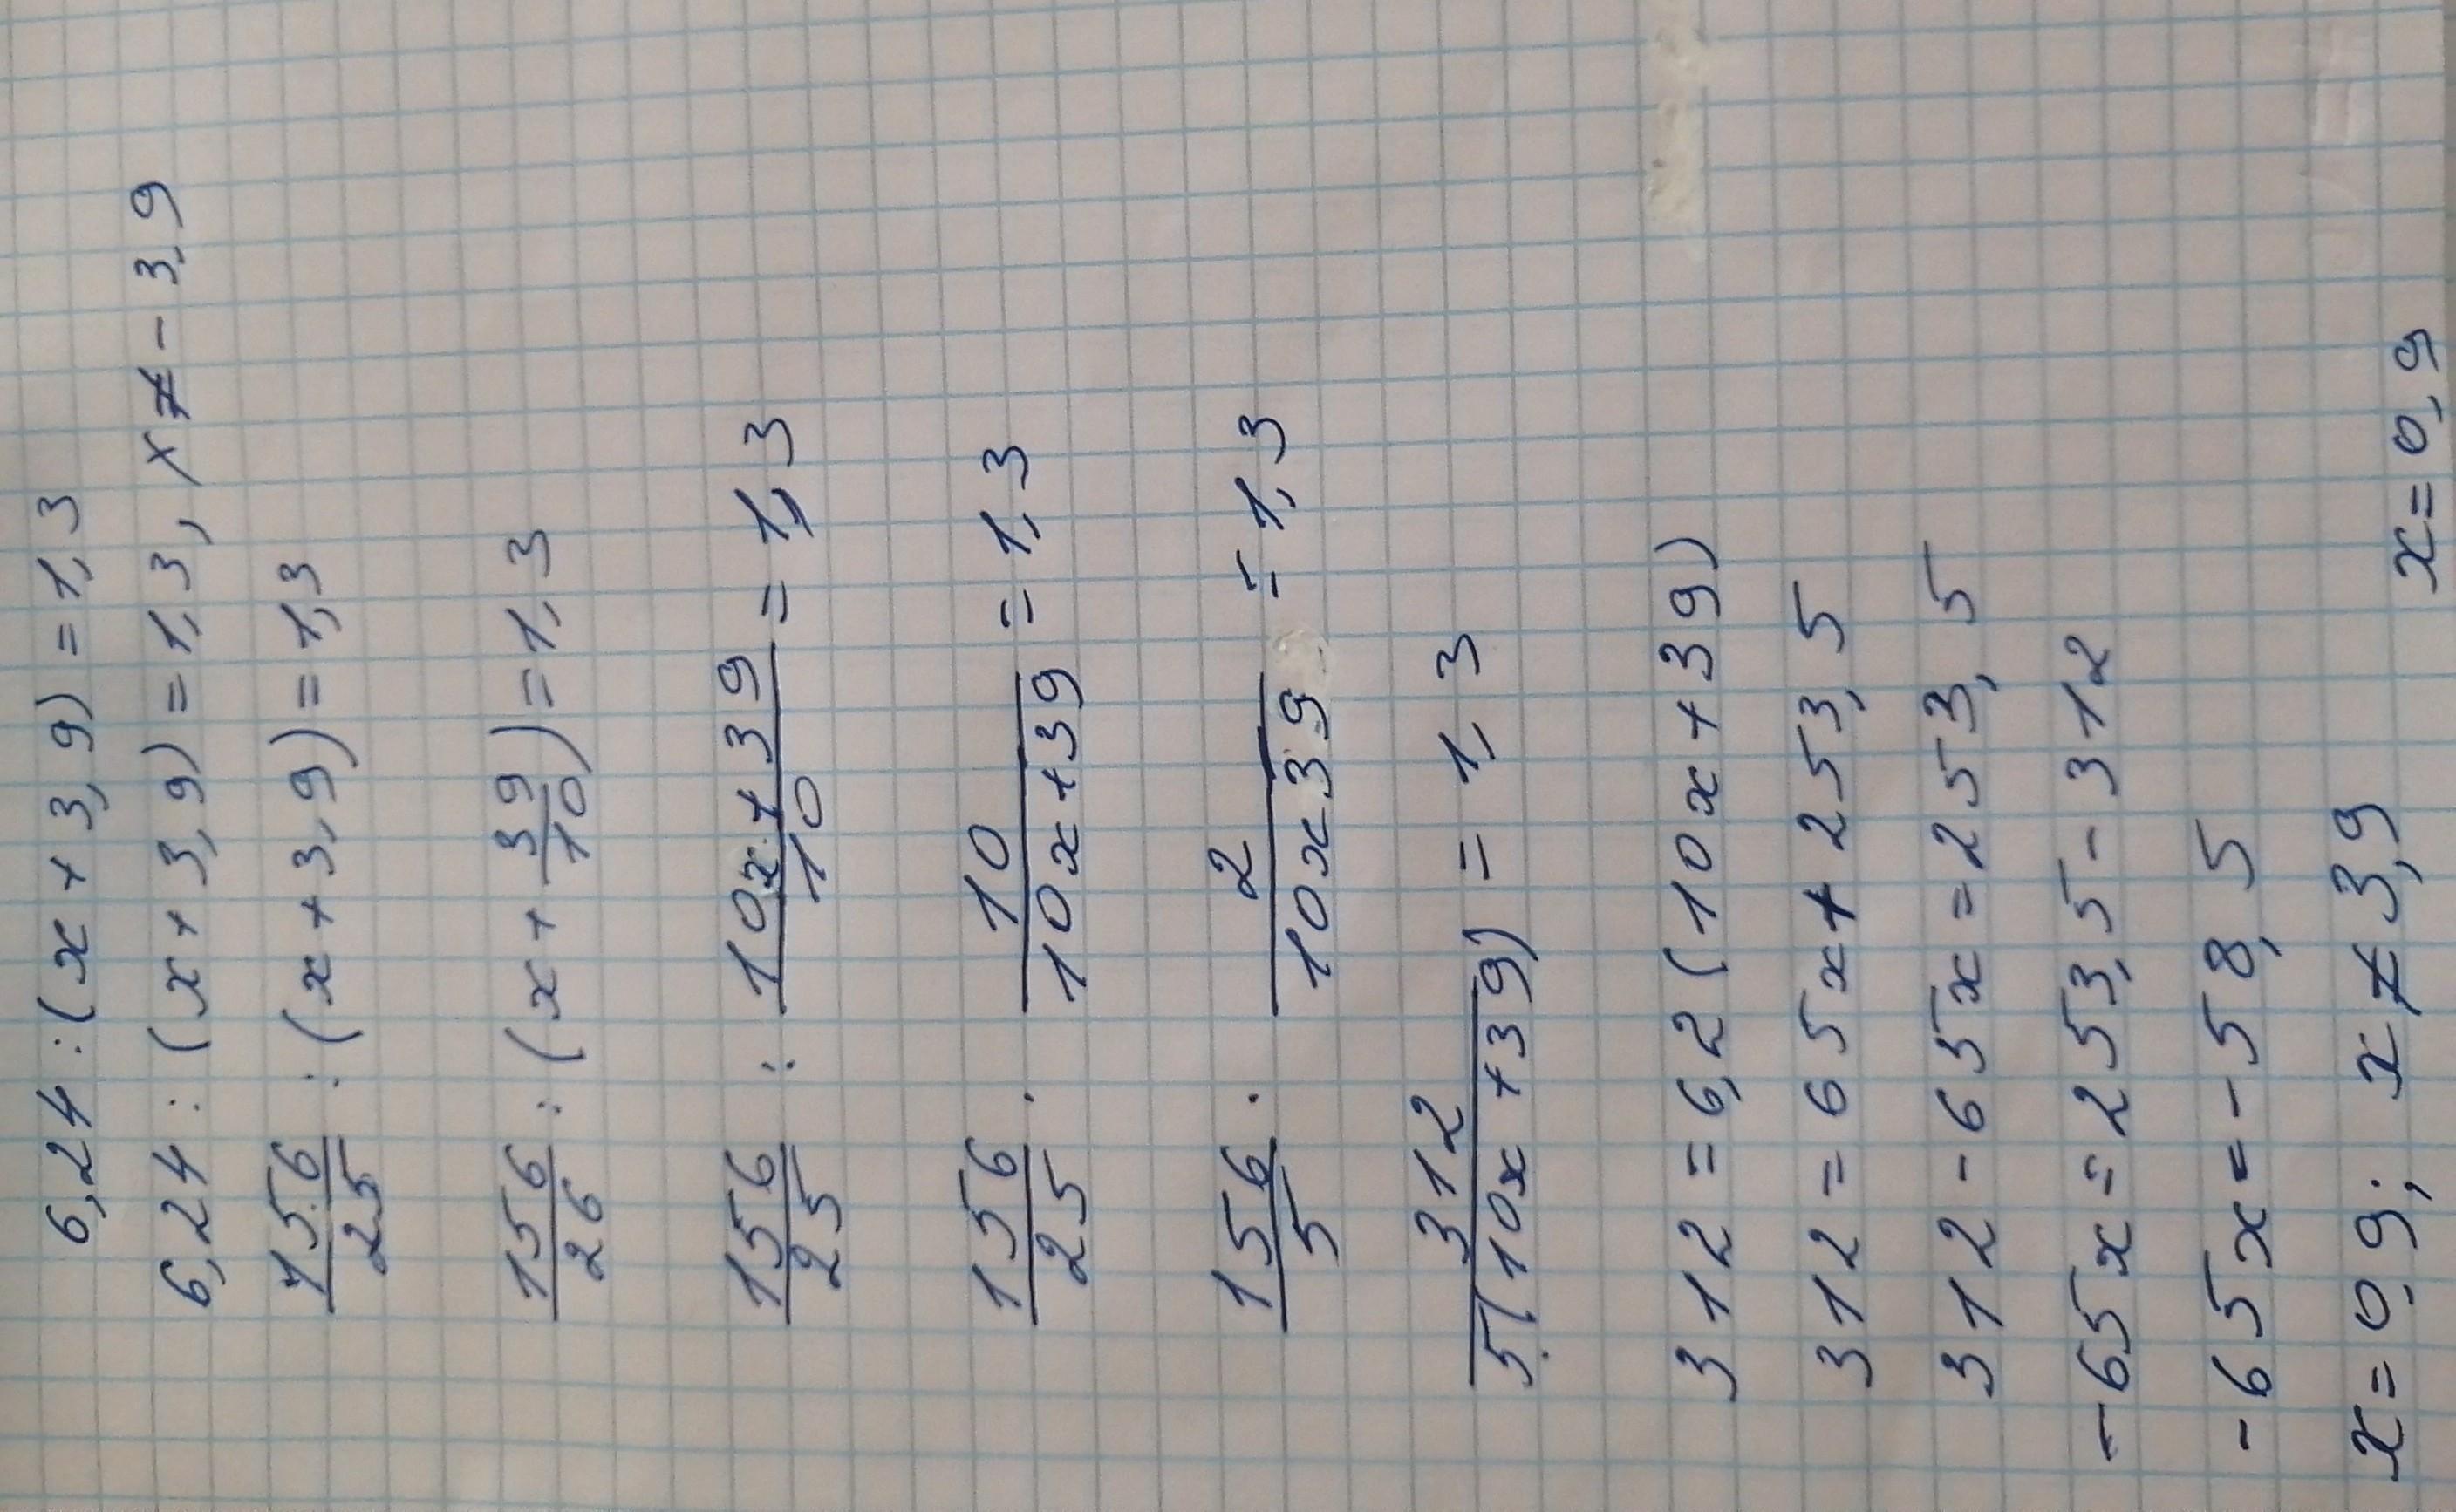 6,24 : (x + 3,9) = 1,3
6,24 : (x + 3,9) = 1,3, x ≠ - 3,9
156/25 : (x + 3,9) = 1,3
156/26 : (x + 39/10) = 1,3
156/25 : 10x + 39/10 = 1,3
156/25 · 10/10x + 39 = 1,3
156/5 · 2/10x 39 = 1,3
312/5(10x + 39) = 1,3
312 = 6,2(10x + 39)
312 = 65x + 253,5
312 - 65x = 253,5
-65x = 253,5 - 312
-65x = -58,5
x = 0,9; x ≠ 3,9
x = 0,9